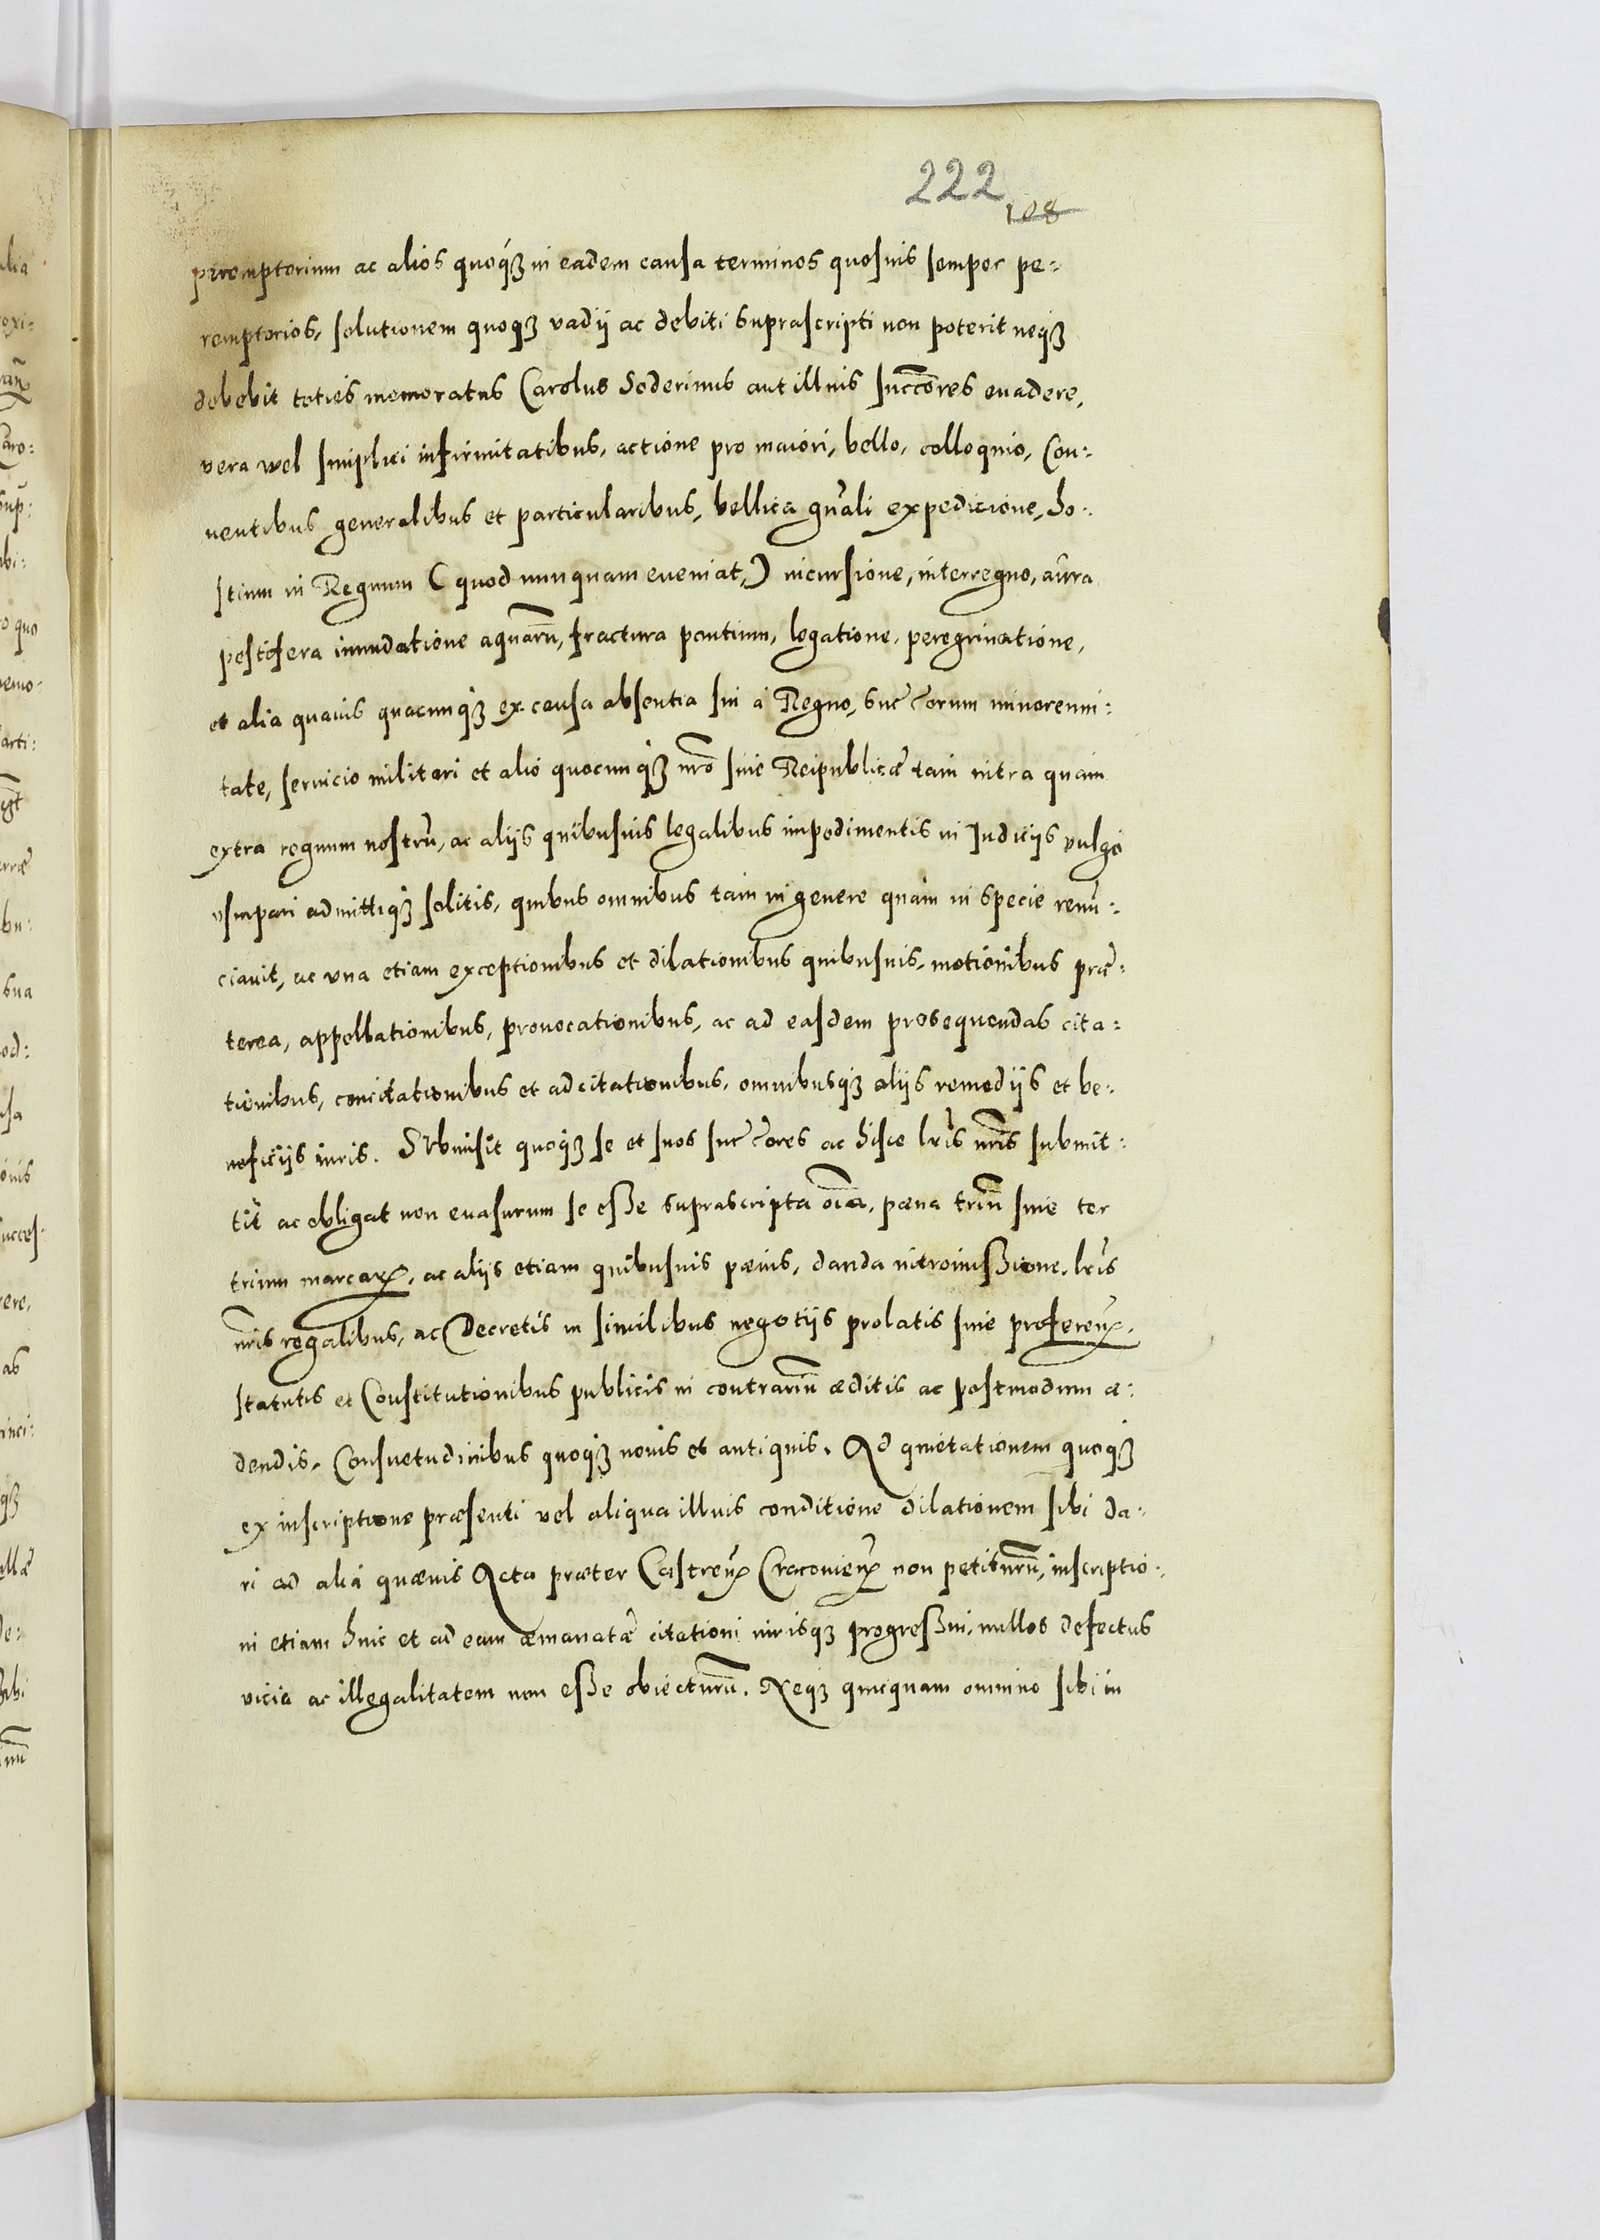 222
108
peremptorium ac alios quoq́ꝫ in eadem causa terminos quosuis semper pe⹀
remptorios, solutionem quoqꝫ vadij ac debiti suprascripti non poterit neqꝫ
debebit toties memoratus Carolus Soderinus aut illius succ̃ores euadere,
vera wel simplici infirmitatibus, actione pro maiori, bello, colloquio, Con⹀
uentibus generalibus et particularibus, bellica gñali expedicione, ho⹀
stium in Regnum (quod nunquam eueniat,) incursione, interregno, aura
pestifera inundatione aquarũ, fractura pontium, legatione, peregrinatione,
et alia quauis quacunqꝫ ex causa absentia sui à Regno, succ̃orum minorenni⹀
tate, seruicio militari et alio quocunqꝫ nr̃o siue Reipublicæ tam intra quam
extra regnum nostrũ, ac alijs quibusuis legalibus impedimentis in Iudicijs vulgo
vsurpari admittiqꝫ solitis, quibus omnibus tam in genere quàm in specie renũ⹀
ciauit, ac vna etiam exceptionibus et dilationibus quibusuis, motionibus præ⹀
terea, appellationibus, prouocationibus, ac ad easdem prosequendas cita⹀
tionibus, concitationibus et adcitationibus, omnibusqꝫ alijs remedijs et be⹀
neficijs iuris. Submisit quoqꝫ se et suos succ̃ores ac hisce lr̃is nr̃is submit⹀
tit ac obligat non euasurum se esse suprascripta oĩa, pæna triũ siue ter
trium marcarꝝ, ac alijs etiam quibusuis pænis, danda intromissione, lr̃is
nr̃is regalibus, ac Decretis in similibus negotijs prolatis siue proferenꝝ,
statutis et Constitutionibus publicis in contrariũ æditis ac postmodum æ⹀
dendis, Consuetudinibus quoqꝫ nouis et antiquis. Ad quietationem quoqꝫ
ex inscriptione præsenti vel aliqua illius conditione dilationem sibi da⹀
ri ad alia quæuis Acta præter Castreñ Cracouieñ non petiturũ, inscriptio⹀
ni etiam huic et ad eam æmanatæ citationi iurisqꝫ progressui, nullos defectus
vicia ac illegalitatem non esse obiecturũ. Neqꝫ quicquam omnino sibi in